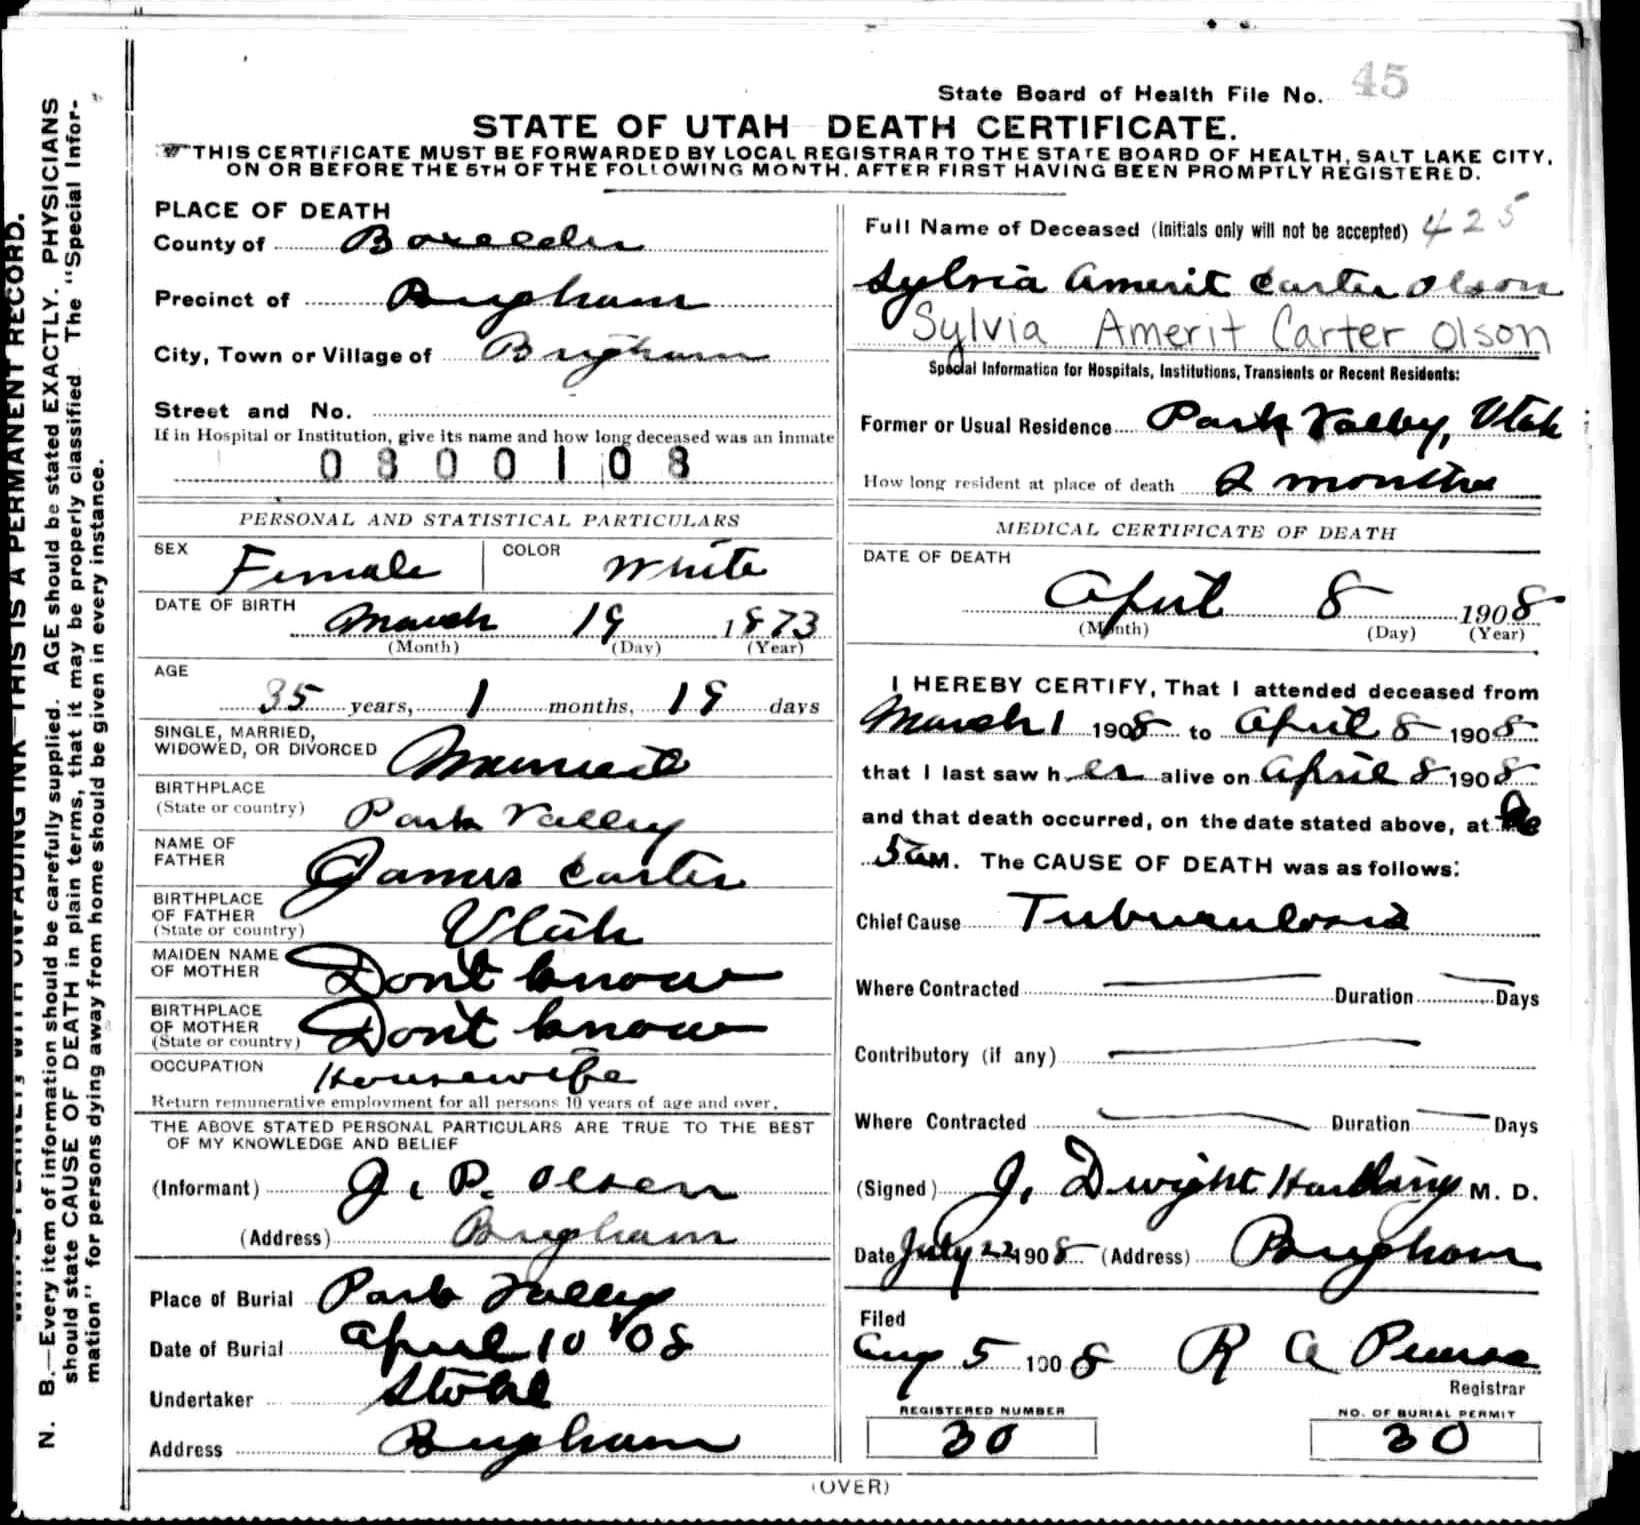 State Board of Health File No. 45
STATE OF UTAH DEATH CERTIFICATE.
THIS CERTIFICATE MUST BE FORWARDED BY LOCAL REGISTRAR TO THE STATE BOARD OF HEALTH, SALT LAKE CITY,
ON OR BEFORE THE 5TH OF THE FOLLOWING MONTH. AFTER FIRST HAVING BEEN PROMPTLY REGISTERED.
PLACE OF DEATH
County of Boxelder
Precinct of Brigham
City, Town or Village of Brigham
Street and No.
If in Hospital or Institution, give its name and how long deceased was an inmate
0300108
PERSONAL AND STATISTICAL PARTICULARS
SEX Female COLOR White
DATE OF BIRTH March 19 1873
(Month) (Day) (Year)
AGE
35 years, 1 months, 19 days
SINGLE, MARRIED,
WIDOWED, OR DIVORCED Married
BIRTHPLACE
(State or country) Park Valley
NAME OF
FATHER James Carter
BIRTHPLACE
OF FATHER
(State or country) Utah
MAIDEN NAME
OF MOTHER Don't know
BIRTHPLACE
OF MOTHER
(State or country) Don't know
OCCUPATION Housewife
Return remunerative employment for all persons 10 years of age and over.
THE ABOVE STATED PERSONAL PARTICULARS ARE TRUE TO THE BEST
OF MY KNOWLEDGE AND BELIEF
(Informant) J. P. Olsen
(Address) Brigham
Place of Burial Park Valley
Date of Burial April 10 '08
Undertaker Stohl
Address Brigham
Full Name of Deceased (Initials only will not be accepted) 425
Sylvia Amerit Carter Olson
Sylvia Amerit Carter Olson
Special Information for Hospitals, Institutions, Transients or Recent Residents:
Former or Usual Residence Park Valley, Utah
How long resident at place of death 2 months
MEDICAL CERTIFICATE OF DEATH
DATE OF DEATH
April 8 1908
(Month) (Day) (Year)
I HEREBY CERTIFY, That I attended deceased from
March 1 1908 to April 8 1908
that I last saw her alive on April 8 1908
and that death occurred, on the date stated above, at
5 a M. The CAUSE OF DEATH was as follows:
Chief Cause Tuberculosis
Where Contracted Duration Days
Contributory (if any)
Where Contracted Duration Days
(Signed) J. Dwight Harding M. D.
Date July 22 1908 (Address) Brigham
Filed
Aug 5 1908 R A Pearse
Registrar
REGISTERED NUMBER NO. OF BURIAL PERMIT
30 30
(OVER)
THIS IS A PERMANENT RECORD.
N. B.—Every item of information should be carefully supplied. AGE should be stated EXACTLY. PHYSICIANS
should state CAUSE OF DEATH in plain terms, that it may be properly classified. The "Special Infor-
mation" for persons dying away from home should be given in every instance.